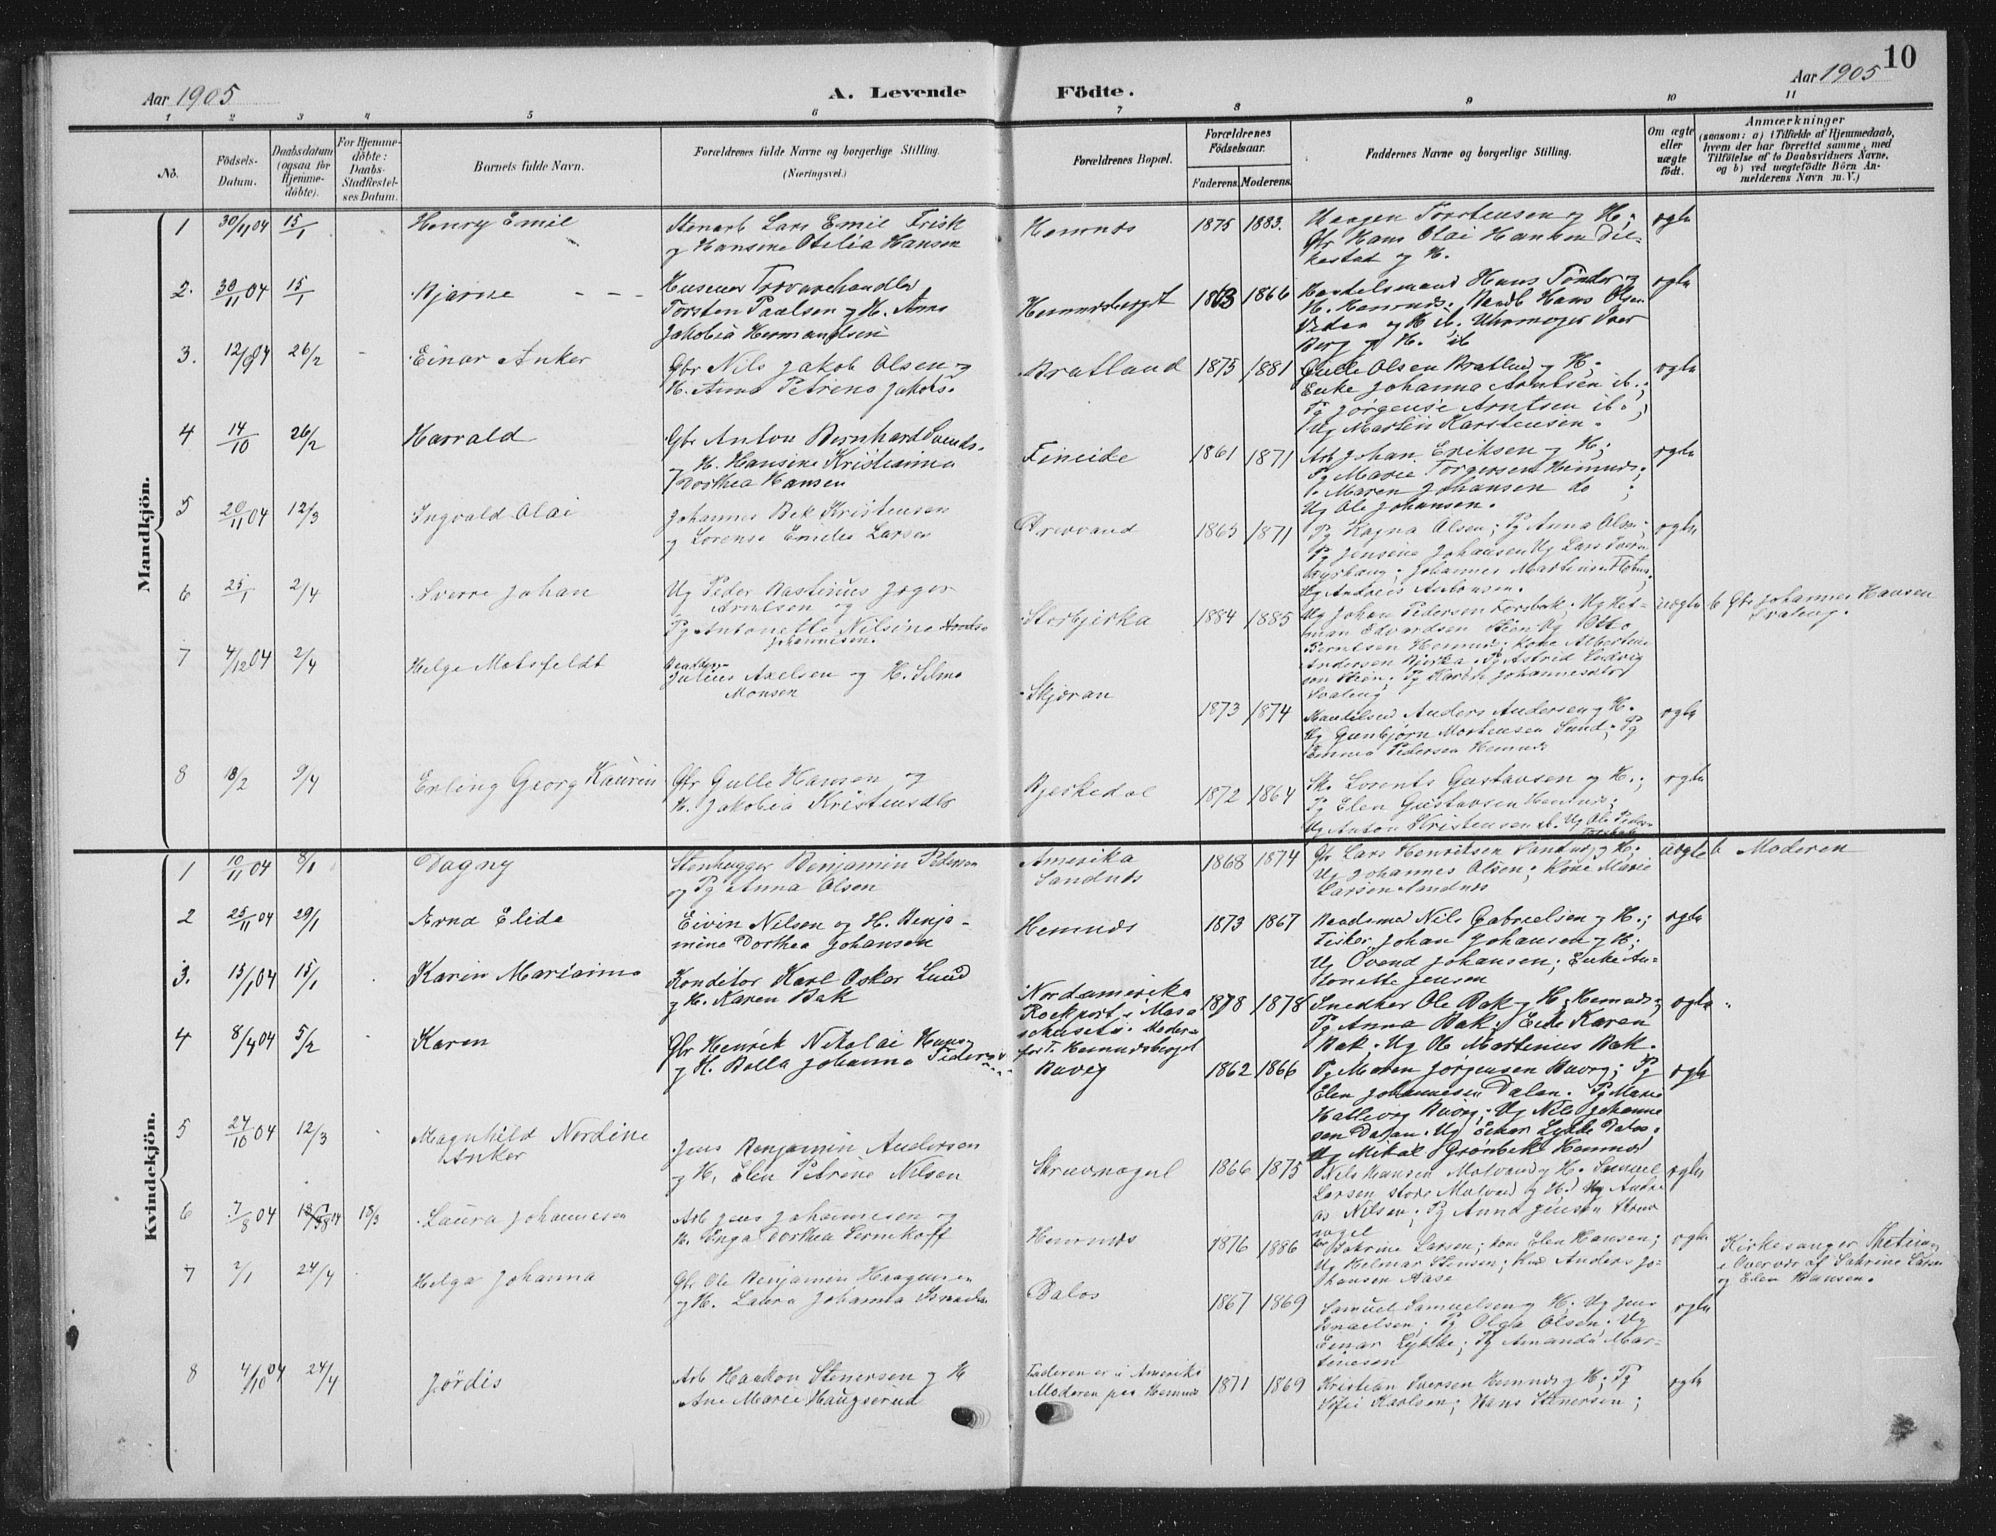 10
Aar 1905
A. Levende
Födte.
Aar 1905
1 2 3 4 5 6 7 8 9 10 11
No.
Födsels-
Datum.
Daabsdatum
(ogsaa for
Hjemme-
döbte).
For Hjemme-
döbte:
Daabs-
Stadfæstel-
ses Datum.
Barnets fulde Navn.
Forældrenes fulde Navne og borgerlige Stilling.
(Næringsvei.)
Forældrenes Bopæl.
Forældrenes
Födselsaar.
Faderens. Moderens.
Faddernes Navne og borgerlige Stilling.
Om ægte
eller
uægte
födt.
Anmærkninger
(saasom: a) i Tilfælde af Hjemmedaab,
hvem der har forrettet samme, med
Tilföielse af to Daabsvidners Navne,
og b) ved uægtefödte Börn An-
melderens Navn m. V.)
Mandkjön.
1 30/11 04 15/1 Henry Emil
Stenarb Lars Emil Frisk
og Hansine Otelia Hansen
Hemnæs 1875 1883.
Haagen Torstensen og H;
Gbr Hans Olai Hansen
og H.
ægte
2. 30/11 04 15/1 Bjarne - - -
Trævarehandler
Torsten Paalsen og H. Ane
Jakobia Hermandsen
Hemnesberget 1863 1866
Handelsmand Hans Tönder og
H. Hemnes. Hans Olsen
og H ib. Uhrmager Iver
Berg og H. ib
ægte
3. 12/9 04 26/2 - Einar Anker
Gbr Nils Jakob Olsen og
H. Anna Petrine Jakobs.
Bratland 1875 1881
Gulle Olsen Bratland og H.
Enke Johanna Arntsen ib.;
Pg Jörgense Arntsen ib.;
Ug Martin Karstensen.
ægte
4 14/10 26/2 Harald
Gbr Anton Bernhard Svends.
og H. Hansine Kristianna
Dorthea Hansen
Fineide 1861 1871
Arb Johan Eriksen og H;
Pg Marie Torgersen Hemnes;
P. Maren Johansen do ;
Ug Ole Johansen.
ægte
5 20/11 04 12/3 Ingvald Olai
Johannes Bek Kristensen
og Lorense Emilie Larsen
Drevvand 1865 1871
Pg Ragna Olsen; Pg Anna Olsen;
Pg Jensine Johansen Ug Lars
Johannes Martinus
Ug Andreas Antonsen.
ægte
6 25/1 2/4 Sverre Johan
Ug Peder Bastinus Jæger
Arntsen og
Pg Antonette Nilsine
Johannesen.
Storbjerka 1884 1885
Ug Johan Pedersen Forsbak; Ug
Edvardsen Steen Ug Otto
Berntsen Hemnes; Kone Albertine
Andersen Bjerka. Pg Astrid Ludvig
sen Steen; Pg Johannesdtr
Svaleng
uægte b Gbr Johannes Hansen
Svaleng.
7 4/12 04 2/4 Helge Motzfeldt
Julius Axelsen og H. Selma
Monsen
Skjæran
1873 1874
Handelsmd Anders Andersen og H.
Ug Gunbjörn Mortensen Sund; Pg
Emma Pedersen Hemnes
ægte
8 18/2 9/4 Erling Georg Kaurin
Gbr Gulle Hansen og
H. Jakobia Kristensdtr
Bjerkedal 1872 1864
Sk. Lorents Gustavsen og H.;
Pg Elen Gustavsen Hemnes;
Ug Anton Kristensen ib. Ug Ole Peder-
ægte
Kvindekjön.
1 10/11 04 8/1 Dagny
Stenhugger Benjamin Pedersen
og Pg Anna Olsen
Amerika
Sandnes
1868 1874
Gbr Lars Henriksen Sandnes og H.
Ug Johannes Olsen; Kone Marie
Larsen Sandnes
uægte b Moderen
2 25/11 04 29/1 Arna Elida
Eivin Nilsen og H. Benja-
mine Dorthea Johansen
Hemnæs 1873 1867
Nils Gabrielsen og H.;
Fisker Johan Johansen og H;
Ug Övend Johansen; Enke An-
tonette Jensen
ægte
3. 13/1 04 15/1 Karin Marianne
Konditor Karl Oskar Lund
og H. Karen Bak
Nordamerika
Rockport i Mass
achusets. Moder
for T. Hemnesberget
1878 1878
Snedker Ole Bak og H. Hemnes;
Pg Anna Bak; Enke Karen
Bak. Ug Ole Martinus Bak.
ægte
4 8/4 04 5/2 Karen
Gbr Henrik Nikolai Hans
og H. Bolla Johanna Peders
Buvig 1862 1866
Pg Maren Jörgensen Buvig; Pg
Elen Johannesen Dalen. Pg Marie
Hallevig Buvig; Ug Nils Johanne
sen Dalan. Ug Einar Lykke Dalos;
Ug Mikal Grönbek Hemnes
ægte
5 24/10 04 12/3 Magnhild Nordine
Anker
Jens Benjamin Andersen
og H. Elen Petrine Nilsen
Stravnagel 1866 1875
Nils Hansen Molvand og H. Samuel
Larsen store Molvand og H. Ug Andre
as Nilsen; Pg Anna Jensen Strav
nagel
ægte
6 7/8 04 18/3 Laura Johannesen
Arb Jens Johannesen og
H. Inga Dorthea Lernkoff
Hemnæs 1876 1886
Sakrine Larsen; Kone Elen Hansen;
Ug Helmar Stensen; Anders Jo-
hansen Aase
ægte
Kirkesanger
i Overvær af Sakrine Larsen
og Elen Hansen.
7 2/1 24/4 Helga Johanna
Gbr Ole Benjamin Haagensen
og H. Laura Johanna
Dalos 1867 1869
Samuel Samuelsen og H; Ug Jens
Israelsen; Pg Olga Olsen. Ug
Einar Lykke; Pg Amanda Mar-
tinesen
ægte
8 4/10 04 24/4 Jördis
Arb Haakon Stenersen og H
Ane Marie Haugserud
Faderen er i Amerika
Moderen paa Hemnæs
1871 1869
Kristian Iversen Hemnes og H; Pg
Sofie Karlsen; Hans Stenersen;
ægte